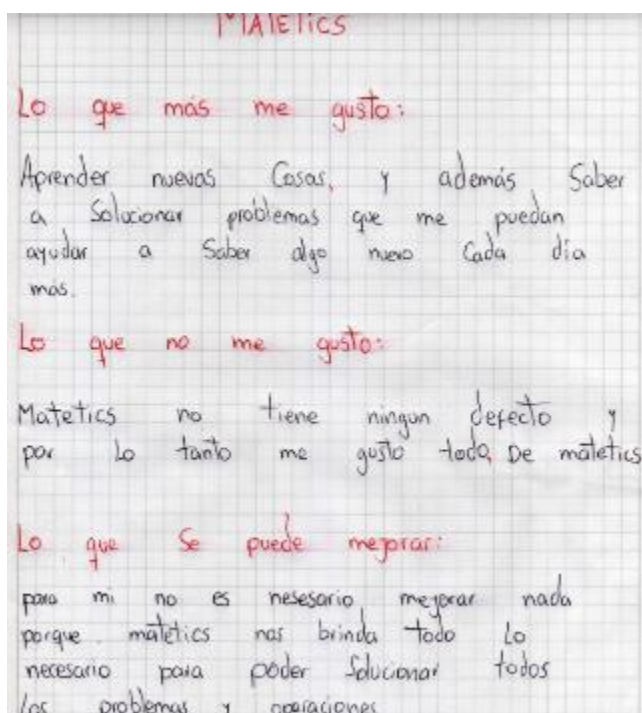 MATETICS
Lo que más me gusto:
Aprender nuevas Cosas, y además Saber
a Solucionar problemas que me puedan
ayudar a Saber algo nuevo Cada día
mas.
Lo que no me gusto:
Matetics no tiene ningun defecto y
por Lo tanto me gusto todo De matetics
Lo que Se puede mejorar:
para mi no es nesesario mejorar nada
porque matetics nos brinda todo Lo
necesario para poder Solucionar todos
los problemas y operaciones